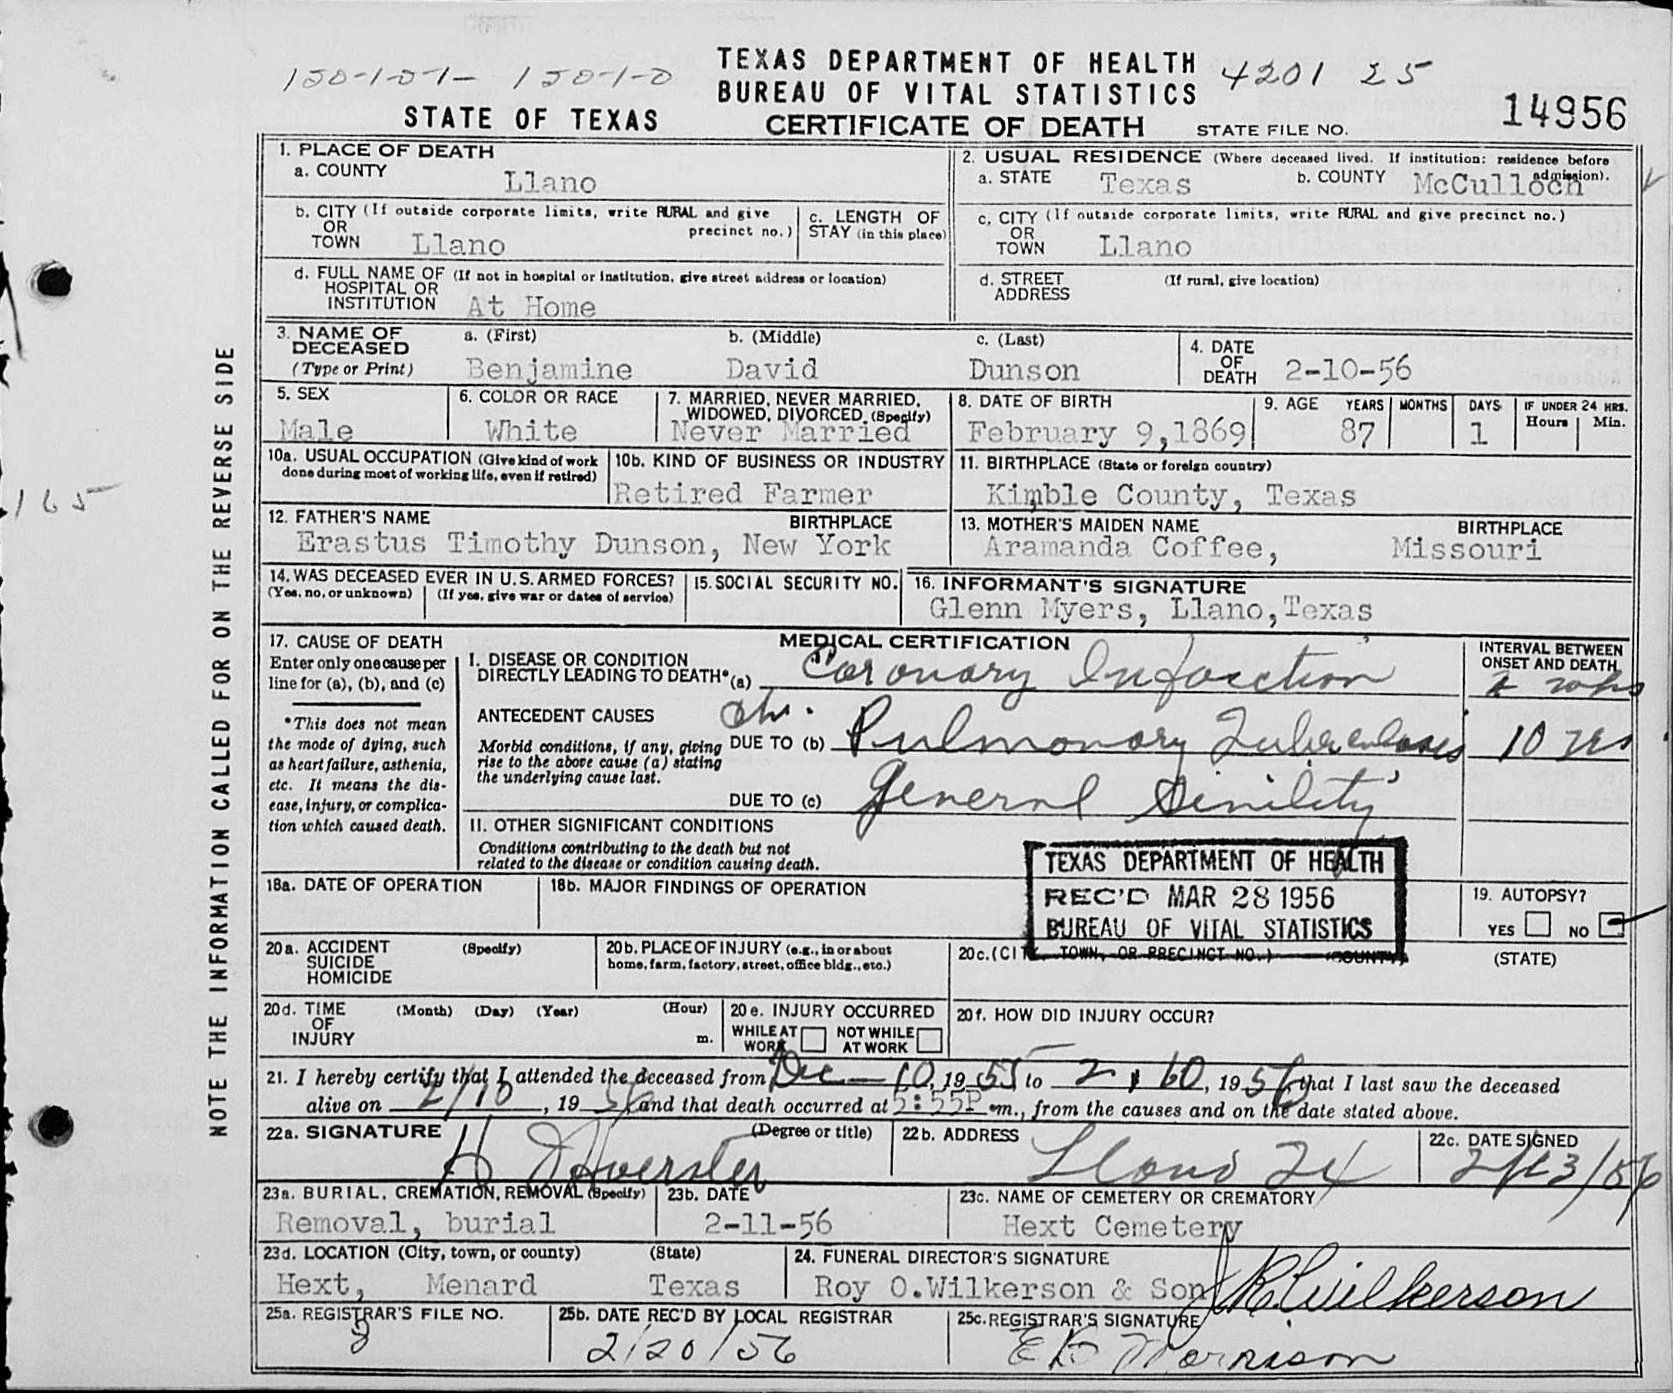 150-1-51- 150-1-0
TEXAS DEPARTMENT OF HEALTH 4201 25
BUREAU OF VITAL STATISTICS
14956
STATE OF TEXAS CERTIFICATE OF DEATH STATE FILE NO.
1. PLACE OF DEATH
a. COUNTY Llano
2. USUAL RESIDENCE (Where deceased lived. If institution: residence before admission).
a. STATE Texas b. COUNTY McCulloch
b. CITY (If outside corporate limits, write RURAL and give precinct no.)
OR
TOWN Llano
c. LENGTH OF
STAY (in this place)
c. CITY (If outside corporate limits, write RURAL and give precinct no.)
OR
TOWN Llano
d. FULL NAME OF (If not in hospital or institution, give street address or location)
HOSPITAL OR
INSTITUTION At Home
d. STREET (If rural, give location)
ADDRESS
3. NAME OF a. (First) b. (Middle) c. (Last)
DECEASED
(Type or Print) Benjamine David Dunson
4. DATE
OF
DEATH 2-10-56
5. SEX
Male
6. COLOR OR RACE
White
7. MARRIED, NEVER MARRIED,
WIDOWED, DIVORCED (Specify)
Never Married
8. DATE OF BIRTH
February 9,1869
9. AGE YEARS MONTHS DAYS IF UNDER 24 HRS.
Hours Min.
87 1
10a. USUAL OCCUPATION (Give kind of work
done during most of working life, even if retired)
10b. KIND OF BUSINESS OR INDUSTRY
Retired Farmer
11. BIRTHPLACE (State or foreign country)
Kimble County, Texas
165
12. FATHER'S NAME BIRTHPLACE
Erastus Timothy Dunson, New York
13. MOTHER'S MAIDEN NAME BIRTHPLACE
Aramanda Coffee, Missouri
14. WAS DECEASED EVER IN U.S. ARMED FORCES?
(Yes, no, or unknown) (If yes, give war or dates of service)
15. SOCIAL SECURITY NO.
16. INFORMANT'S SIGNATURE
Glenn Myers, Llano, Texas
17. CAUSE OF DEATH
Enter only one cause per
line for (a), (b), and (c)
*This does not mean
the mode of dying, such
as heart failure, asthenia,
etc. It means the dis-
ease, injury, or complica-
tion which caused death.
MEDICAL CERTIFICATION
I. DISEASE OR CONDITION
DIRECTLY LEADING TO DEATH* (a) Coronary Infarction
INTERVAL BETWEEN
ONSET AND DEATH
ANTECEDENT CAUSES Chr.
Morbid conditions, if any, giving
rise to the above cause (a) stating
the underlying cause last.
DUE TO (b) Pulmonary Tuberculosis 10 yrs
DUE TO (c) General Sinility
II. OTHER SIGNIFICANT CONDITIONS
Conditions contributing to the death but not
related to the disease or condition causing death.
TEXAS DEPARTMENT OF HEALTH
REC'D MAR 28 1956
BUREAU OF VITAL STATISTICS
18a. DATE OF OPERATION
18b. MAJOR FINDINGS OF OPERATION
19. AUTOPSY?
YES NO
20a. ACCIDENT (Specify)
SUICIDE
HOMICIDE
20b. PLACE OF INJURY (e.g., in or about
home, farm, factory, street, office bldg., etc.)
20c. (CITY, TOWN, OR PRECINCT NO.) (COUNTY) (STATE)
20d. TIME (Month) (Day) (Year) (Hour)
OF
INJURY m.
20e. INJURY OCCURRED
WHILE AT NOT WHILE
WORK AT WORK
20f. HOW DID INJURY OCCUR?
21. I hereby certify that I attended the deceased from Dec 10, 1955 to 2 10, 1956 that I last saw the deceased
alive on 2/10, 1956 and that death occurred at 5:55P m., from the causes and on the date stated above.
22a. SIGNATURE (Degree or title)
H J Hoerster
22b. ADDRESS
Llano Tx
22c. DATE SIGNED
2/13/56
23a. BURIAL, CREMATION, REMOVAL (Specify)
Removal, burial
23b. DATE
2-11-56
23c. NAME OF CEMETERY OR CREMATORY
Hext Cemetery
23d. LOCATION (City, town, or county) (State)
Hext, Menard Texas
24. FUNERAL DIRECTOR'S SIGNATURE
Roy O.Wilkerson & Son JR Wilkerson
25a. REGISTRAR'S FILE NO.
8
25b. DATE REC'D BY LOCAL REGISTRAR
2/20/56
25c. REGISTRAR'S SIGNATURE
Morrison
NOTE THE INFORMATION CALLED FOR ON THE REVERSE SIDE